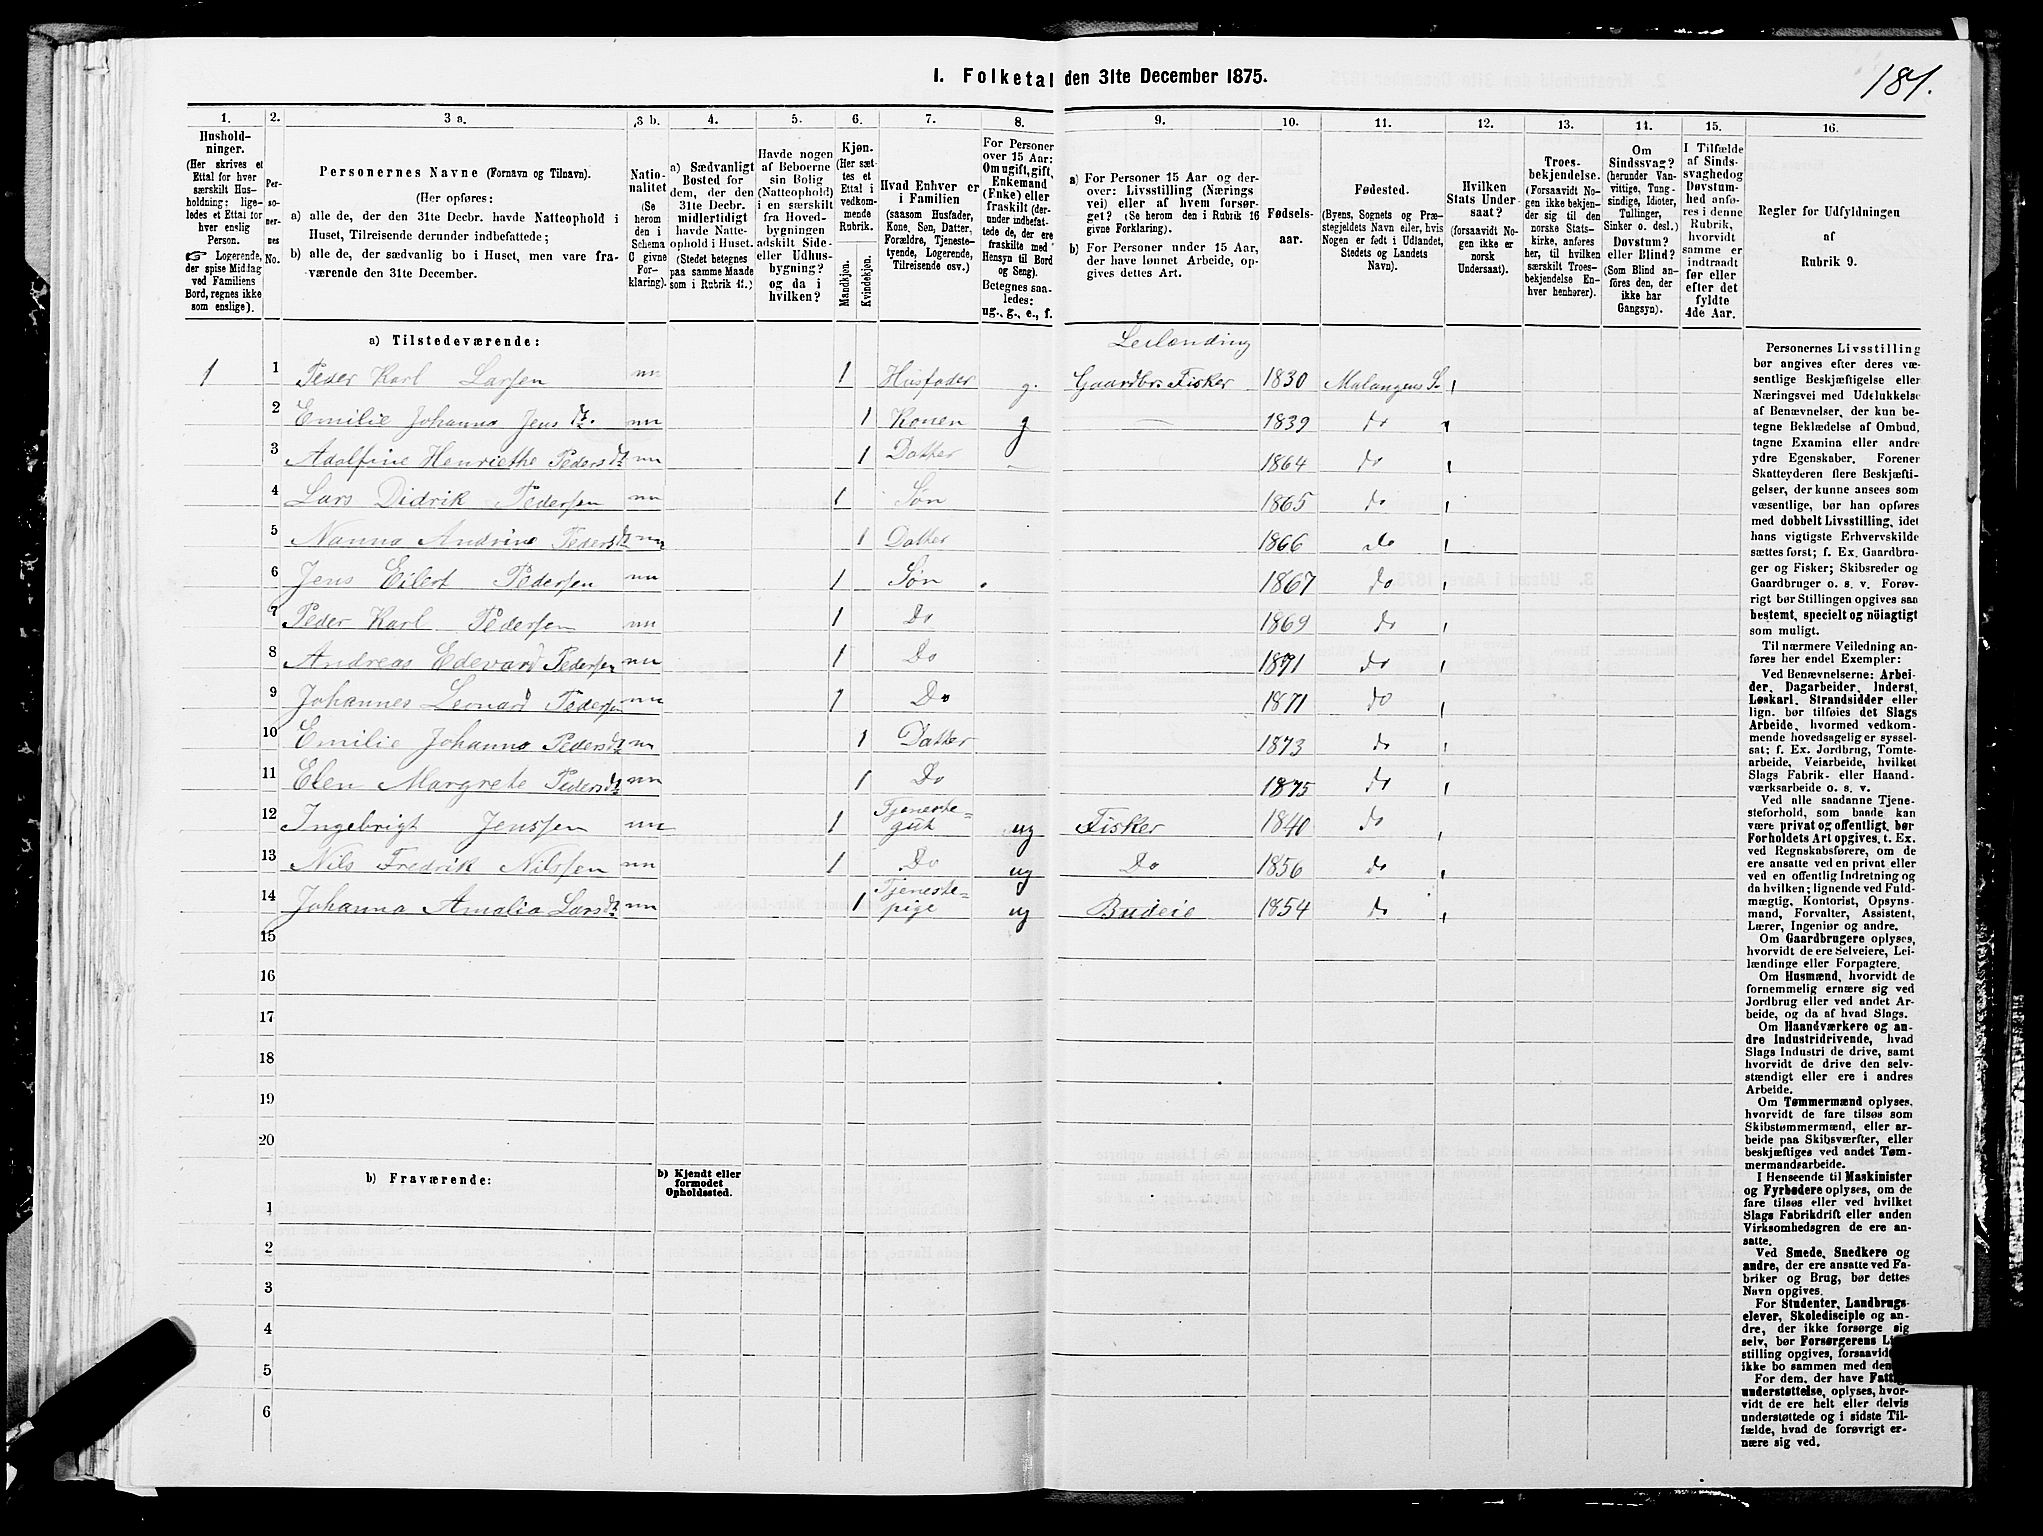 I. Folketal den 31te December 1875.
187.
1.
Hushold-
ninger.
(Her skrives et
Ettal for hver
særskilt Hus-
holdning; lige-
ledes et Ettal for
hver enslig
Person.
☞ Logerende,
der spise Middag
ved Familiens
Bord, regnes ikke
som enslige).
2.
Per-
so-
ner-
nes
No.
3 a.
Personernes Navne (Fornavn og Tilnavn).
(Her opføres:
a) alle de, der den 31te Decbr. havde Natteophold i
Huset, Tilreisende derunder indbefattede;
b) alle de, der sædvanlig bo i Huset, men vare fra-
værende den 31te December.
3 b.
Natio-
nalitet
(Se
herom
den i
Schema
C givne
For-
klaring).
4.
a) Sædvanligt
Bosted for
dem, der den
31te Decbr.
midlertidigt
havde Natte-
ophold i Huset.
(Stedet betegnes
paa samme Maade
som i Rubrik 11.)
5.
Havde nogen
af Beboerne
sin Bolig
(Natteophold)
i en særskilt
fra Hoved-
bygningen
adskilt Side-
eller Udhus-
bygning?
og da i
hvilken?
6.
Kjøn.
(Her sæt-
tes et
Ettal i
vedkom-
mende
Rubrik.
Mandkjøn.
Kvindekjøn.
7.
Hvad Enhver er
i Familien
(saasom Husfader,
Kone, Søn, Datter,
Forældre, Tjeneste-
tyende, Logerende,
Tilreisende osv.)
8.
For Personer
over 15 Aar:
Om ugift, gift,
Enkemand
(Enke) eller
fraskilt (der-
under indbefat-
tede de, der ere
fraskilte med
Hensyn til Bord
og Seng).
Betegnes saa-
ledes:
ug., g., e., f.
9.
a) For Personer 15 Aar og der-
over: Livsstilling (Nærings
vei) eller af hvem forsør-
get? (Se herom den i Rubrik 16
givne Forklaring).
b) For Personer under 15 Aar,
der have lønnet Arbeide, op-
gives dettes Art.
10.
Fødsels-
aar.
11.
Fødested.
(Byens, Sognets og Præ-
stegjeldets Navn eller, hvis
Nogen er født i Udlandet,
Stedets og Landets
Navn).
12.
Hvilken
Stats Under-
saat?
(forsaavidt No-
gen ikke er
norsk
Undersaat).
13.
Troes-
bekjendelse.
(Forsaavidt No-
gen ikke bekjen-
der sig til den
norske Stats-
kirke, anføres
her, til hvilken
særskilt Troes-
bekjendelse En-
hver henhører).
14.
Om
Sindssvag?
(herunder Van-
vittige, Tung-
sindige, Idioter,
Tullinger,
Sinker o. desl.)
Døvstum?
eller Blind?
(Som Blind an-
føres den, der
ikke har
Gangsyn).
15.
I Tilfælde
af Sinds-
svaghed og
Døvstum-
hed anfø-
res i denne
Rubrik,
hvorvidt
samme er
indtraadt
før eller
efter det
fyldte
4de Aar.
16.
Regler for Udfyldningen
af
Rubrik 9.
a) Tilstedeværende:
Leilænding
1 1 Peder Karl Larsen nn 1 Husfader g. Gaardbr. Fisker 1830 Malangens S.
2 Emilie Johanna Jensdt. nn 1 Konen g — 1839 do
3 Adolfine Henriethe Pedersdt nn 1 Datter 1864 do
4 Lars Didrik Pedersen nn 1 Søn 1865 do
5 Nanna Andrine Pedersdt nn 1 Datter 1866 do
6 Jens Eilert Pedersen nn 1 Søn 1867 do
7 Peder Karl Pedersen nn 1 Do 1869 do
8 Andreas Edevard Pedersen nn 1 Do 1871 do
9 Johannes Leonard Pedersen nn 1 Do 1871 do
10 Emilie Johanna Pedersdt nn 1 Datter 1873 do
11 Elen Margrete Pedersdt nn 1 Do 1875 do
12 Ingebrigt Jenssen nn 1 Tjeneste=
gut ug Fisker 1840 do
13 Nils Fredrik Nilssen nn 1 Do ug Do 1856 do
14 Johanna Amalia Larsdt nn 1 Tjeneste=
pige ug Budeie 1854 do
15
16
17
18
19
20
b) Fraværende:
b) Kjendt eller
formodet
Opholdssted.
1
2
3
4
5
6
Personernes Livsstilling
bør angives efter deres væ-
sentlige Beskjæftigelse eller
Næringsvei med Udelukkelse
af Benævnelser, der kun be-
tegne Beklædelse af Ombud,
tagne Examina eller andre
ydre Egenskaber. Forener
Skatteyderen flere Beskjæfti-
gelser, der kunne ansees som
væsentlige, bør han opføres
med dobbelt Livsstilling, idet
hans vigtigste Erhvervskilde
sættes først; f. Ex. Gaardbru-
ger og Fisker; Skibsreder og
Gaardbruger o. s. v. Forøv-
rigt bør Stillingen opgives saa
bestemt, specielt og nöiagtigt
som muligt.
Til nærmere Veiledning an-
føres her endel Exempler:
Ved Benævnelserne: Arbei-
der, Dagarbeider, Inderst,
Løskarl, Strandsidder eller
lign. bør tilføies det Slags
Arbeide, hvormed vedkom-
mende hovedsagelig er syssel-
sat; f. Ex. Jordbrug, Tomte-
arbeide, Veiarbeide, hvilket
Slags Fabrik- eller Haand-
værksarbeide o. s. v.
Ved alle saadanne Tjene-
steforhold, som baade kan
være privat og offentligt, bør
Forholdets Art opgives, t. Ex.
ved Regnskabsførere, om de
ere ansatte ved en privat eller
ved en offentlig Indretning og
da hvilken; lignende ved Fuld-
mægtig, Kontorist, Opsyns-
mand, Forvalter, Assistent,
Lærer, Ingeniør og andre.
Om Gaardbrugere oplyses,
hvorvidt de ere Selveiere, Lei-
lændinge eller Forpagtere.
Om Husmænd, hvorvidt de
fornemmelig ernære sig ved
Jordbrug eller ved andet Ar-
beide, og da af hvad Slags.
Om Haandværkere og an-
dre Industridrivende, hvad
Slags Industri de drive, samt
hvorvidt de drive den selv-
stændigt eller ere i andres
Arbeide.
Om Tømmermænd oplyses,
hvorvidt de fare tilsøs som
Skibstømmermænd, eller ar-
beide paa Skibsværfter, eller
beskjæftiges ved andet Tøm-
mermandsarbeide.
I Henseende til Maskinister
og Fyrbødere oplyses, om de
fare tilsøs eller ved hvilket
Slags Fabrikdrift eller anden
Virksomhedsgren de ere an-
satte.
Ved Smede, Snedkere og
andre, der ere ansatte ved Fa-
briker og Brug, bør dettes
Navn opgives.
For Studenter, Landbrugs-
elever, Skoledisciple og an-
dre, der ikke forsørge sig
selv, bør Forsørgerens Li
stilling opgives, forsaavid
ikke bo sammen med den
For dem, der have Fattig
understøttelse, oplyses, hvor-
vidt de ere helt eller delvis
understøttede og i sidste Til-
fælde, hvad de forøvrigt er-
nære sig ved.